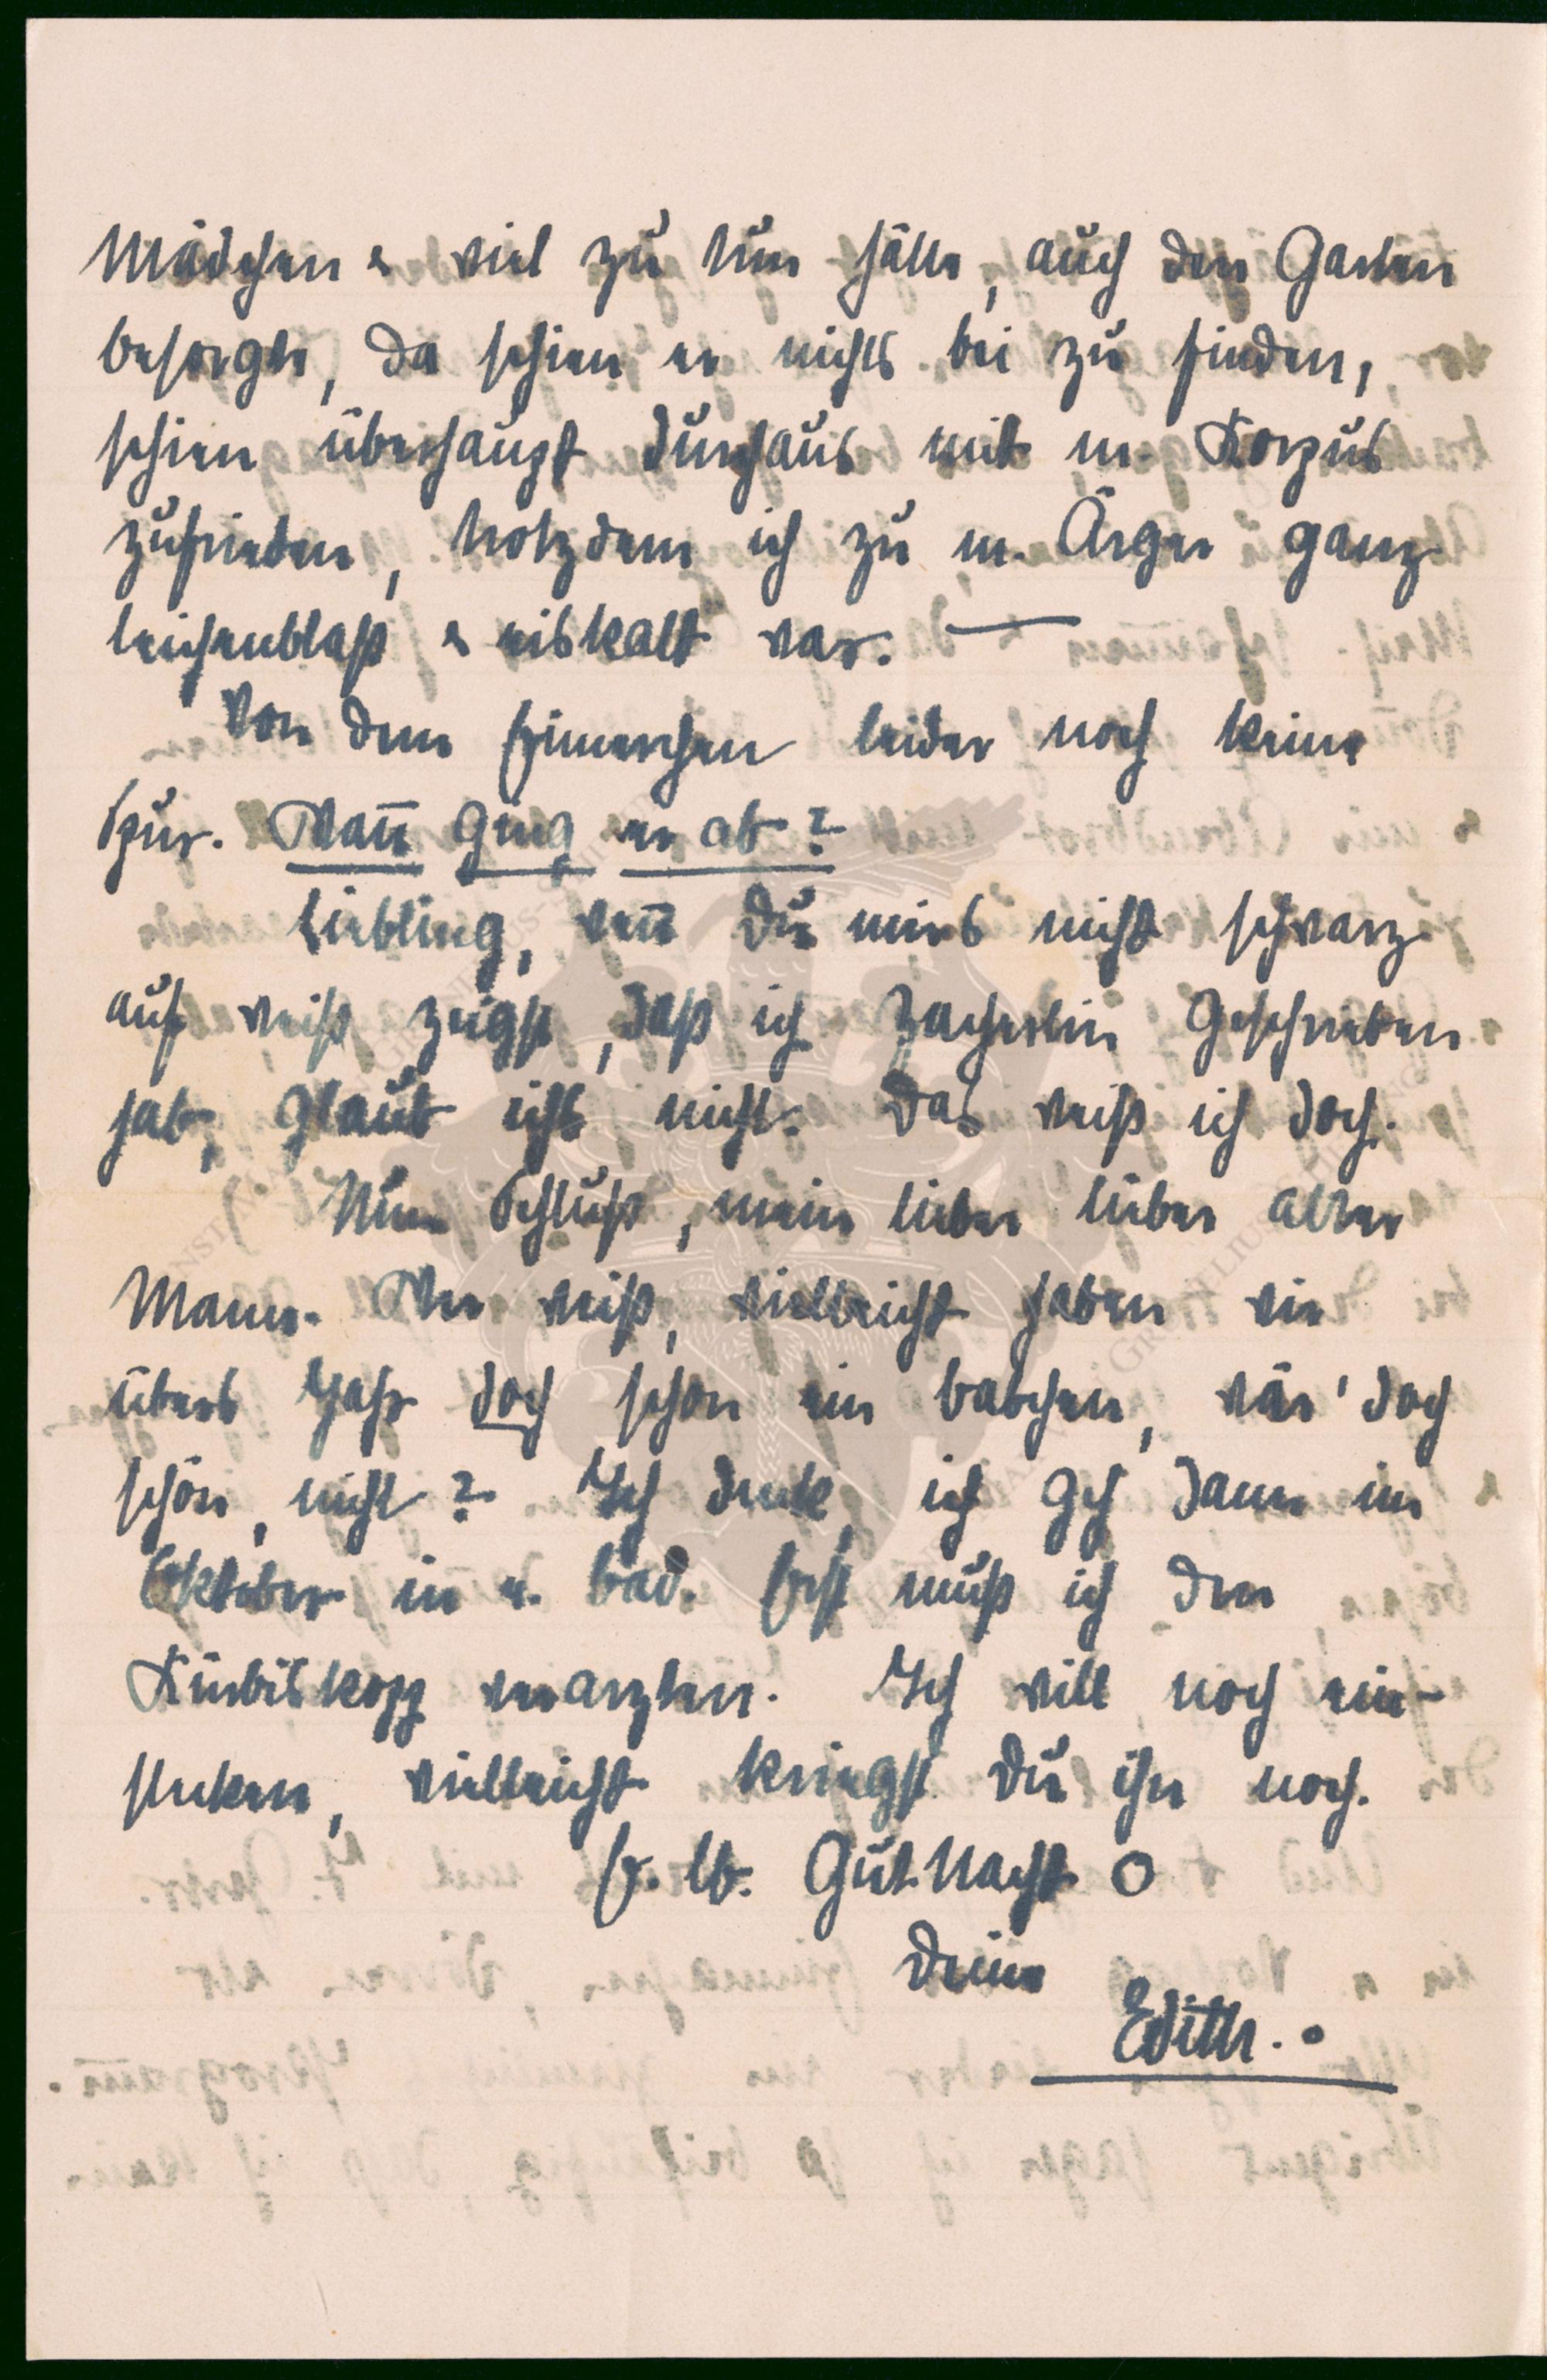 Mädchen & viel zu tun hätte, auch den Garten
besorgte, da schien er nichts bei zu finden,
schien überhaupt durchaus mit m. Korpus
zufrieden, trotzdem ich zu m. Ärger ganz
leichenblaß & eiskalt war. —
Von dem Eimerchen leider noch keine
Spur. Wañ ging er ab?
Liebling, weñ Du mirs nicht schwarz
auf weiß zeigst, daß ich Zacherlin geschrieben
hab, glaub ichs nicht. Das weiß ich doch.
Nun Schluß, mein lieber lieber alter
Mann. Wer weiß, vielleicht haben wir
übers Jahr doch schon ein babchen, wär' doch
schön, nicht? Ich denk, ich geh dann im
Oktober in u. bad. Erst muß ich den
Kürbiskopp verarzten. Ich will noch ein-
stecken, vielleicht kriegst Du ihn noch.
E. lb. Gut. Nacht O
Deine
Edith.